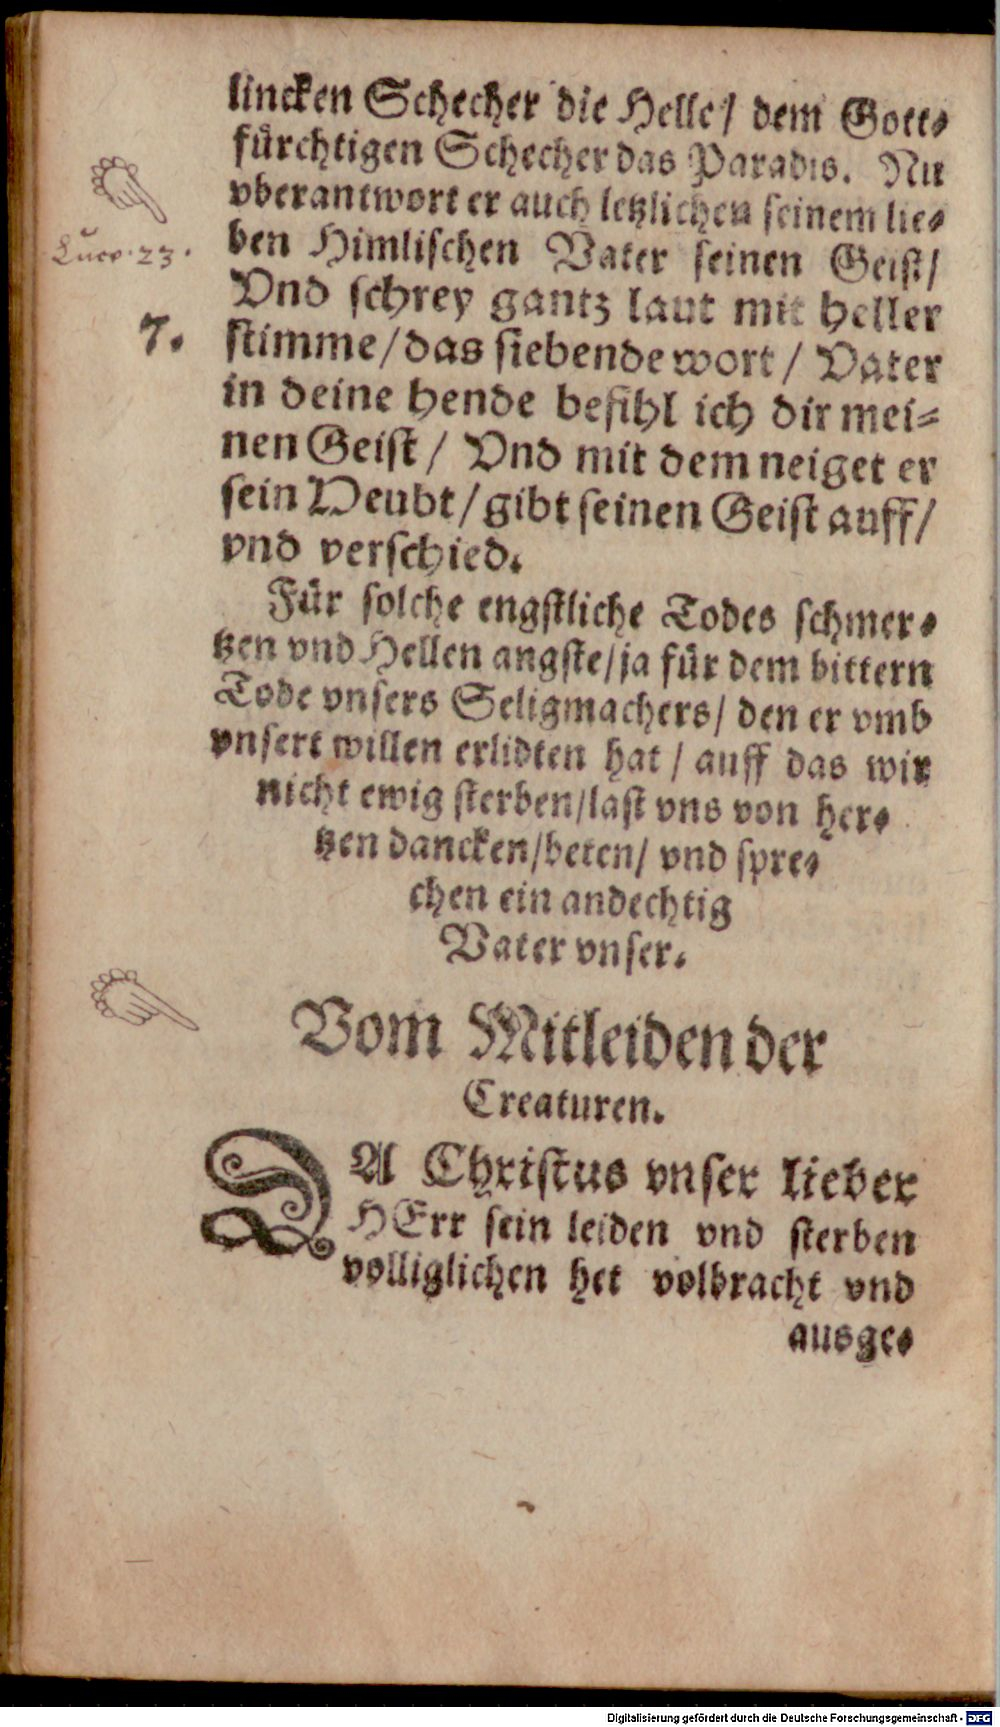 lincken Schecher die Helle/ dem Gott⸗
fürchtigen Schecher das Paradis. Nu
vberantwort er auch letzlichen seinem lie⸗
Luce. 23.
ben Himlischen Vater seinen Geist/
Vnd schrey gantz laut mit heller
7.
stimme/das siebende wort/ Vater
in deine hende befihl ich dir mei⸗
nen Geist/ Vnd mit dem neiget er
sein Heubt/gibt seinen Geist auff/
vnd verschied.
Für solche engstliche Todes schmer⸗
tzen vnd Hellen angste/ja für dem bittern
Tode vnsers Seligmachers/ den er vmb
vnsert willen erlidten hat/ auff das wir
nicht ewig sterben/last vns von her⸗
tzen dancken/beten/ vnd spre⸗
chen ein andechtig
Vater vnser.
Vom Mitleiden der
Creaturen.
DA Christus vnser lieber
HErr sein leiden vnd sterben
volliglichen het volbracht vnd
ausge⸗
Digitalisierung gefördert durch die Deutsche Forschungsgemeinschaft - DFG